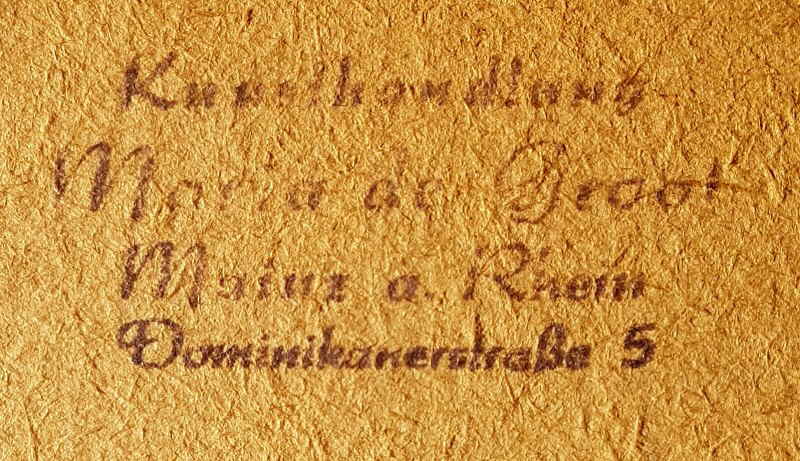 Kunsthandlung
Maria de Groot
Mainz a. Rhein
Dominikanerstraße 5